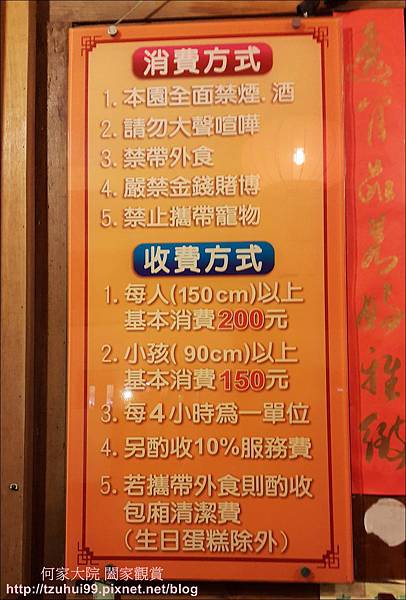 消費方式
1. 本園全面禁煙.酒
2. 請勿大聲喧嘩
3. 禁帶外食
4. 嚴禁金錢賭博
5. 禁止攜帶寵物
收費方式
1. 每人(150cm)以上
基本消費200元
2. 小孩( 90cm)以上
基本消費150元
3. 每4小時為一單位
4. 另酌收10%服務費
5. 若攜帶外食則酌收
包廂清潔費
(生日蛋糕除外)
何家大院 闔家觀賞
http://tzuhui99.pixnet.net/blog